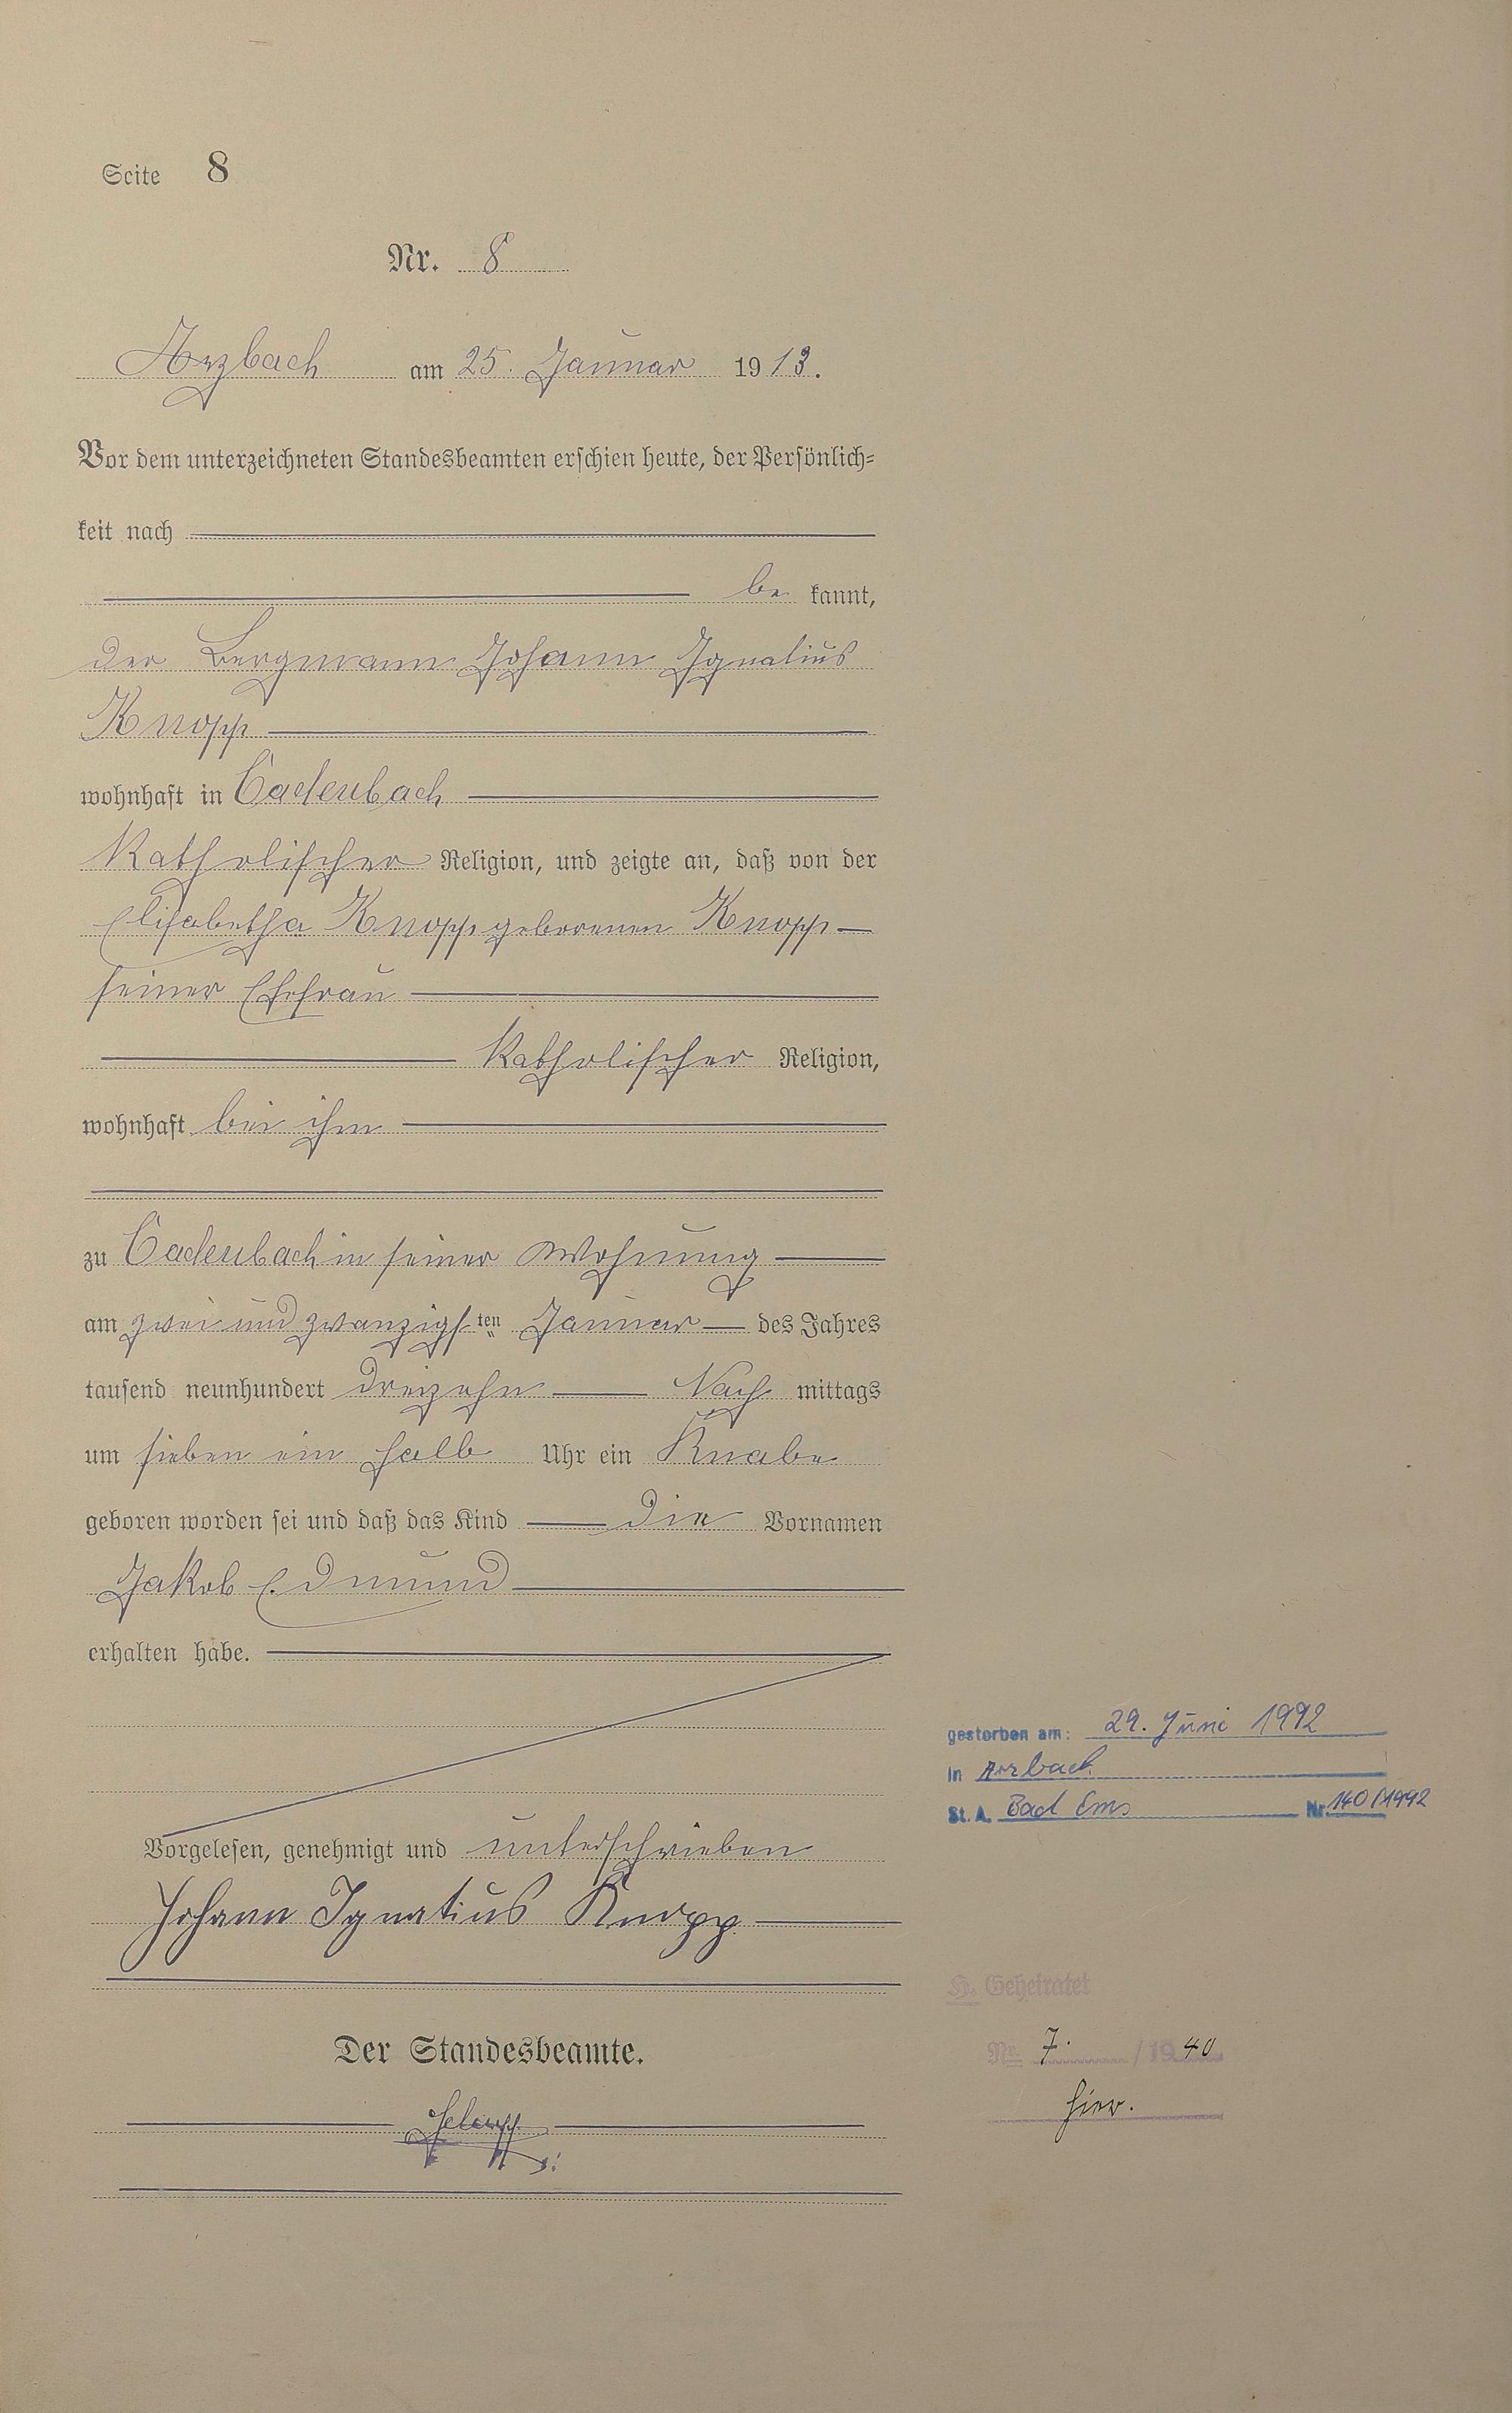 Seite 8
Nr. 8
Arzbach am 25. Januar 1913.
Vor dem unterzeichneten Standesbeamten erschien heute, der Persönlich-
keit nach
be kannt,
der Bergmann Johann Ignatius
Knopp
wohnhaft in Cadenbach
Katholischer Religion, und zeigte an, daß von der
Elisabetha Knopp geborenen Knopp
seiner Ehefrau
Katholischer Religion,
wohnhaft bei ihm
zu Cadenbach in seiner Wohnung
am zwei und zwanzigsten Januar des Jahres
tausend neunhundert dreizehn Nach mittags
um sieben ein halb Uhr ein Knabe
geboren worden sei und daß das Kind die Vornamen
Jakob Edmund
erhalten habe.
Vorgelesen, genehmigt und unterschrieben
Johann Ignatius Knopp
Der Standesbeamte.
gestorben am: 29. Juni 1992
in Arzbach
St. A. Bad Ems Nr. 140/1992
H. Geheiratet
Nr. 7. / 1940
hier.